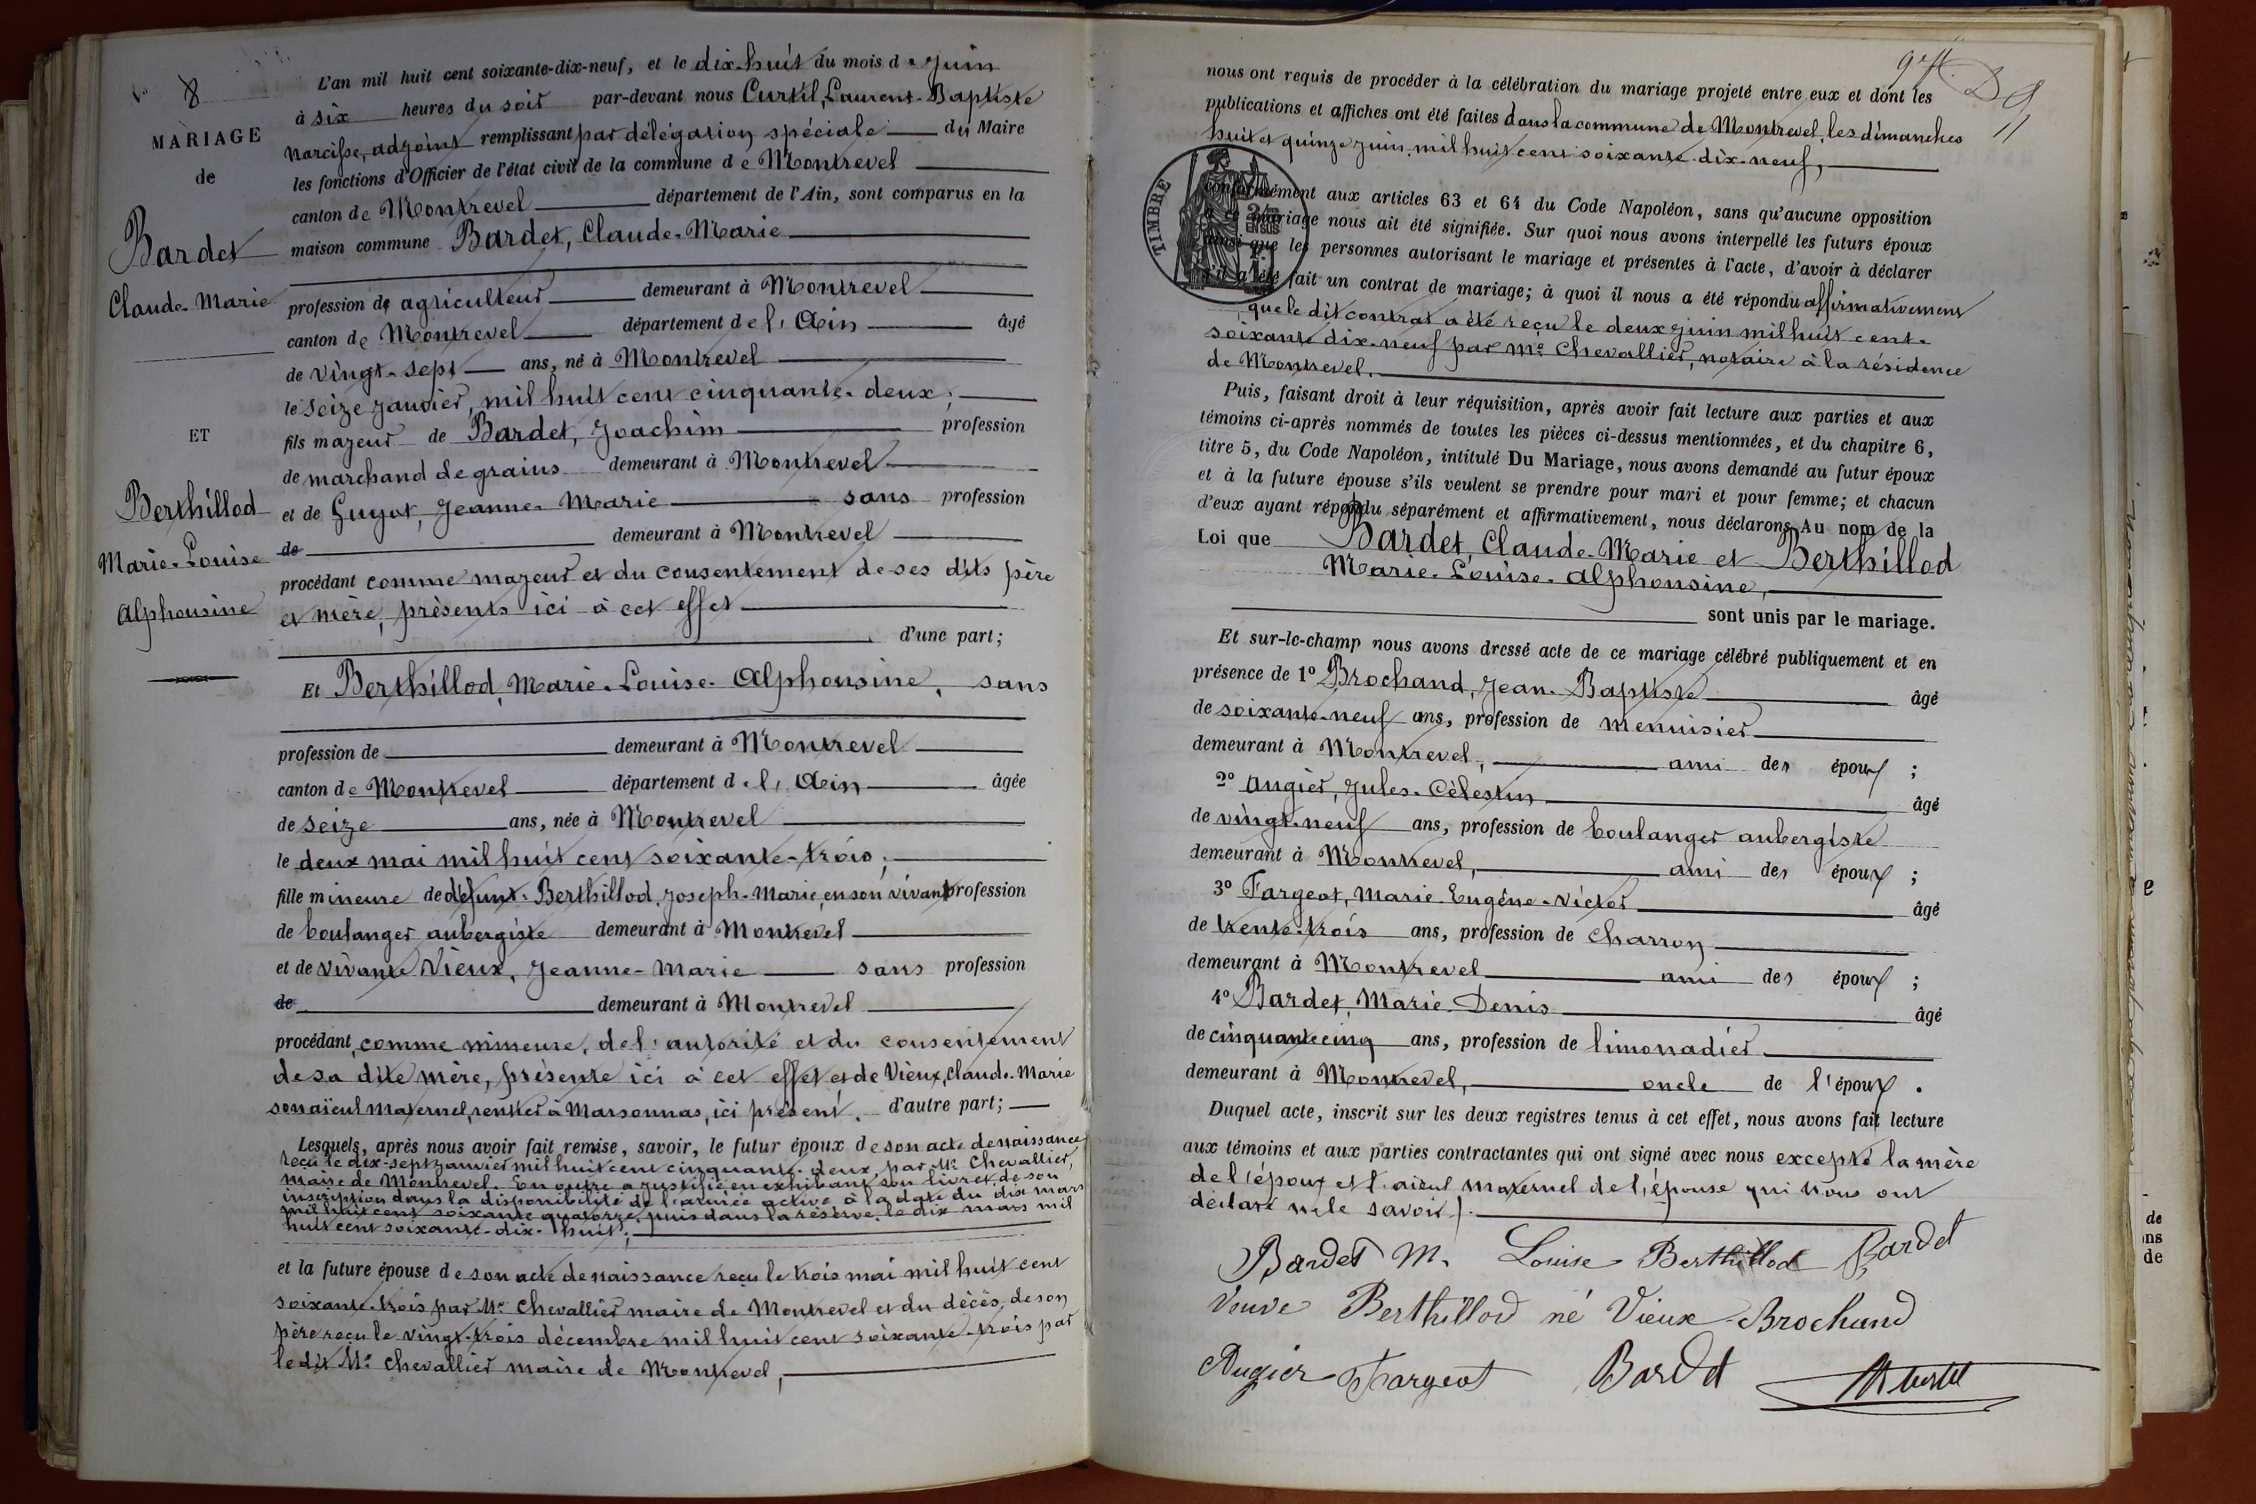 No 8
MARIAGE
de
Bardet
Claude-Marie
ET
Berthillod
Marie-Louise
Alphonsine
L'an mil huit cent soixante-dix-neuf, et le dix-huit du mois de Juin
à six heures du soir par-devant nous Curtil, Laurent-Baptiste
Narcisse, adjoint remplissant par délégation spéciale du Maire
les fonctions d'Officier de l'état civil de la commune de Montrevel
canton de Montrevel département de l'Ain, sont comparus en la
maison commune Bardet, Claude-Marie
profession de agriculteur demeurant à Montrevel
canton de Montrevel département de l'Ain âgé
de vingt-sept ans, né à Montrevel
le seize janvier, mil huit cent cinquante-deux,
fils majeur de Bardet, Joachim profession
de marchand de grains demeurant à Montrevel
et de Guyot, Jeanne-Marie sans profession
de demeurant à Montrevel
procédant comme majeur et du consentement de ses dits père
et mère, présents ici à cet effet
d'une part;
Et Berthillod, Marie-Louise-Alphonsine, sans
profession de demeurant à Montrevel
canton de Montrevel département de l'Ain âgée
de seize ans, née à Montrevel
le deux mai mil huit cent soixante-trois,
fille mineure de défunt Berthillod, Joseph-Marie, en son vivant profession
de boulanger aubergiste demeurant à Montrevel
et de vivante Vieux, Jeanne-Marie sans profession
de demeurant à Montrevel
procédant, comme mineure, de l'autorité et du consentement
de sa dite mère, présente ici à cet effet et de Vieux, Claude-Marie
son aïeul maternel, rentier à Marsonnas, ici présent, d'autre part;
Lesquels, après nous avoir fait remise, savoir, le futur époux de son acte de naissance
reçu le dix-sept janvier mil huit cent cinquante-deux, par Mr Chevallier,
maire de Montrevel. En outre a justifié en exhibant son livret, de son
inscription dans la disponibilité de l'armée active à la date du dix mars
mil huit cent soixante quatorze, puis dans la réserve, le dix mars mil
huit cent soixante-dix-huit;
et la future épouse de son acte de naissance reçu le trois mai mil huit cent
soixante-trois par Mr Chevallier maire de Montrevel et du décès, de son
père reçu le vingt-trois décembre mil huit cent soixante-trois par
le dit Mr Chevallier maire de Montrevel,
nous ont requis de procéder à la célébration du mariage projeté entre eux et dont les
publications et affiches ont été faites dans la commune de Montrevel, les dimanches
huit et quinze juin, mil huit cent soixante-dix-neuf,
TIMBRE
conformément aux articles 63 et 64 du Code Napoléon, sans qu'aucune opposition
à ce mariage nous ait été signifiée. Sur quoi nous avons interpellé les futurs époux
ainsi que les personnes autorisant le mariage et présentes à l'acte, d'avoir à déclarer
s'il a été fait un contrat de mariage; à quoi il nous a été répondu affirmativement
que le dit contrat a été reçu le deux juin mil huit cent
soixante dix-neuf par Me Chevallier, notaire à la résidence
de Montrevel.
Puis, faisant droit à leur réquisition, après avoir fait lecture aux parties et aux
témoins ci-après nommés de toutes les pièces ci-dessus mentionnées, et du chapitre 6,
titre 5, du Code Napoléon, intitulé Du Mariage, nous avons demandé au futur époux
et à la future épouse s'ils veulent se prendre pour mari et pour femme; et chacun
d'eux ayant répondu séparément et affirmativement, nous déclarons, Au nom de la
Loi que Bardet, Claude-Marie et Berthillod
Marie-Louise-Alphonsine,
sont unis par le mariage.
Et sur-le-champ nous avons dressé acte de ce mariage célébré publiquement et en
présence de 1º Brochand, Jean-Baptiste âgé
de soixante-neuf ans, profession de menuisier
demeurant à Montrevel, ami des époux ;
2º Augier, Jules-Célestin âgé
de vingt-neuf ans, profession de boulanger aubergiste
demeurant à Montrevel, ami des époux ;
3º Fargeot, Marie-Eugène-Victor âgé
de trente-trois ans, profession de charron
demeurant à Montrevel ami des époux ;
4º Bardet, Marie-Denis âgé
de cinquante cinq ans, profession de limonadier
demeurant à Montrevel, oncle de l'époux .
Duquel acte, inscrit sur les deux registres tenus à cet effet, nous avons fait lecture
aux témoins et aux parties contractantes qui ont signé avec nous excepté la mère
de l'époux et l'aïeul maternel de l'épouse qui nous ont
déclaré ne le savoir.
Bardet M. Louise Berthillod Bardet
Veuve Berthillod né Vieux Brochand
Augier Fargeot Bardet